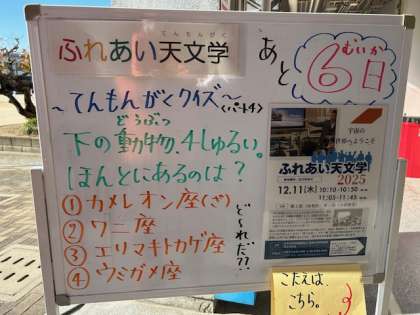 てんもんがく
ふれあい天文学
あと
むいか
6日
~てんもんがくクイズ~
<パート4>
どうぶつ
下の動物、4しゅるい。
ほんとにあるのは?
① カメレオン座(ざ)
② ワニ座
③ エリマキトカゲ座
④ ウミガメ座
どーれだ??
宇宙の
世界へようこそ
ふれあい天文学
2025
12.11(木) 10:10-10:50
11:05-11:45
こたえは、
こちら。